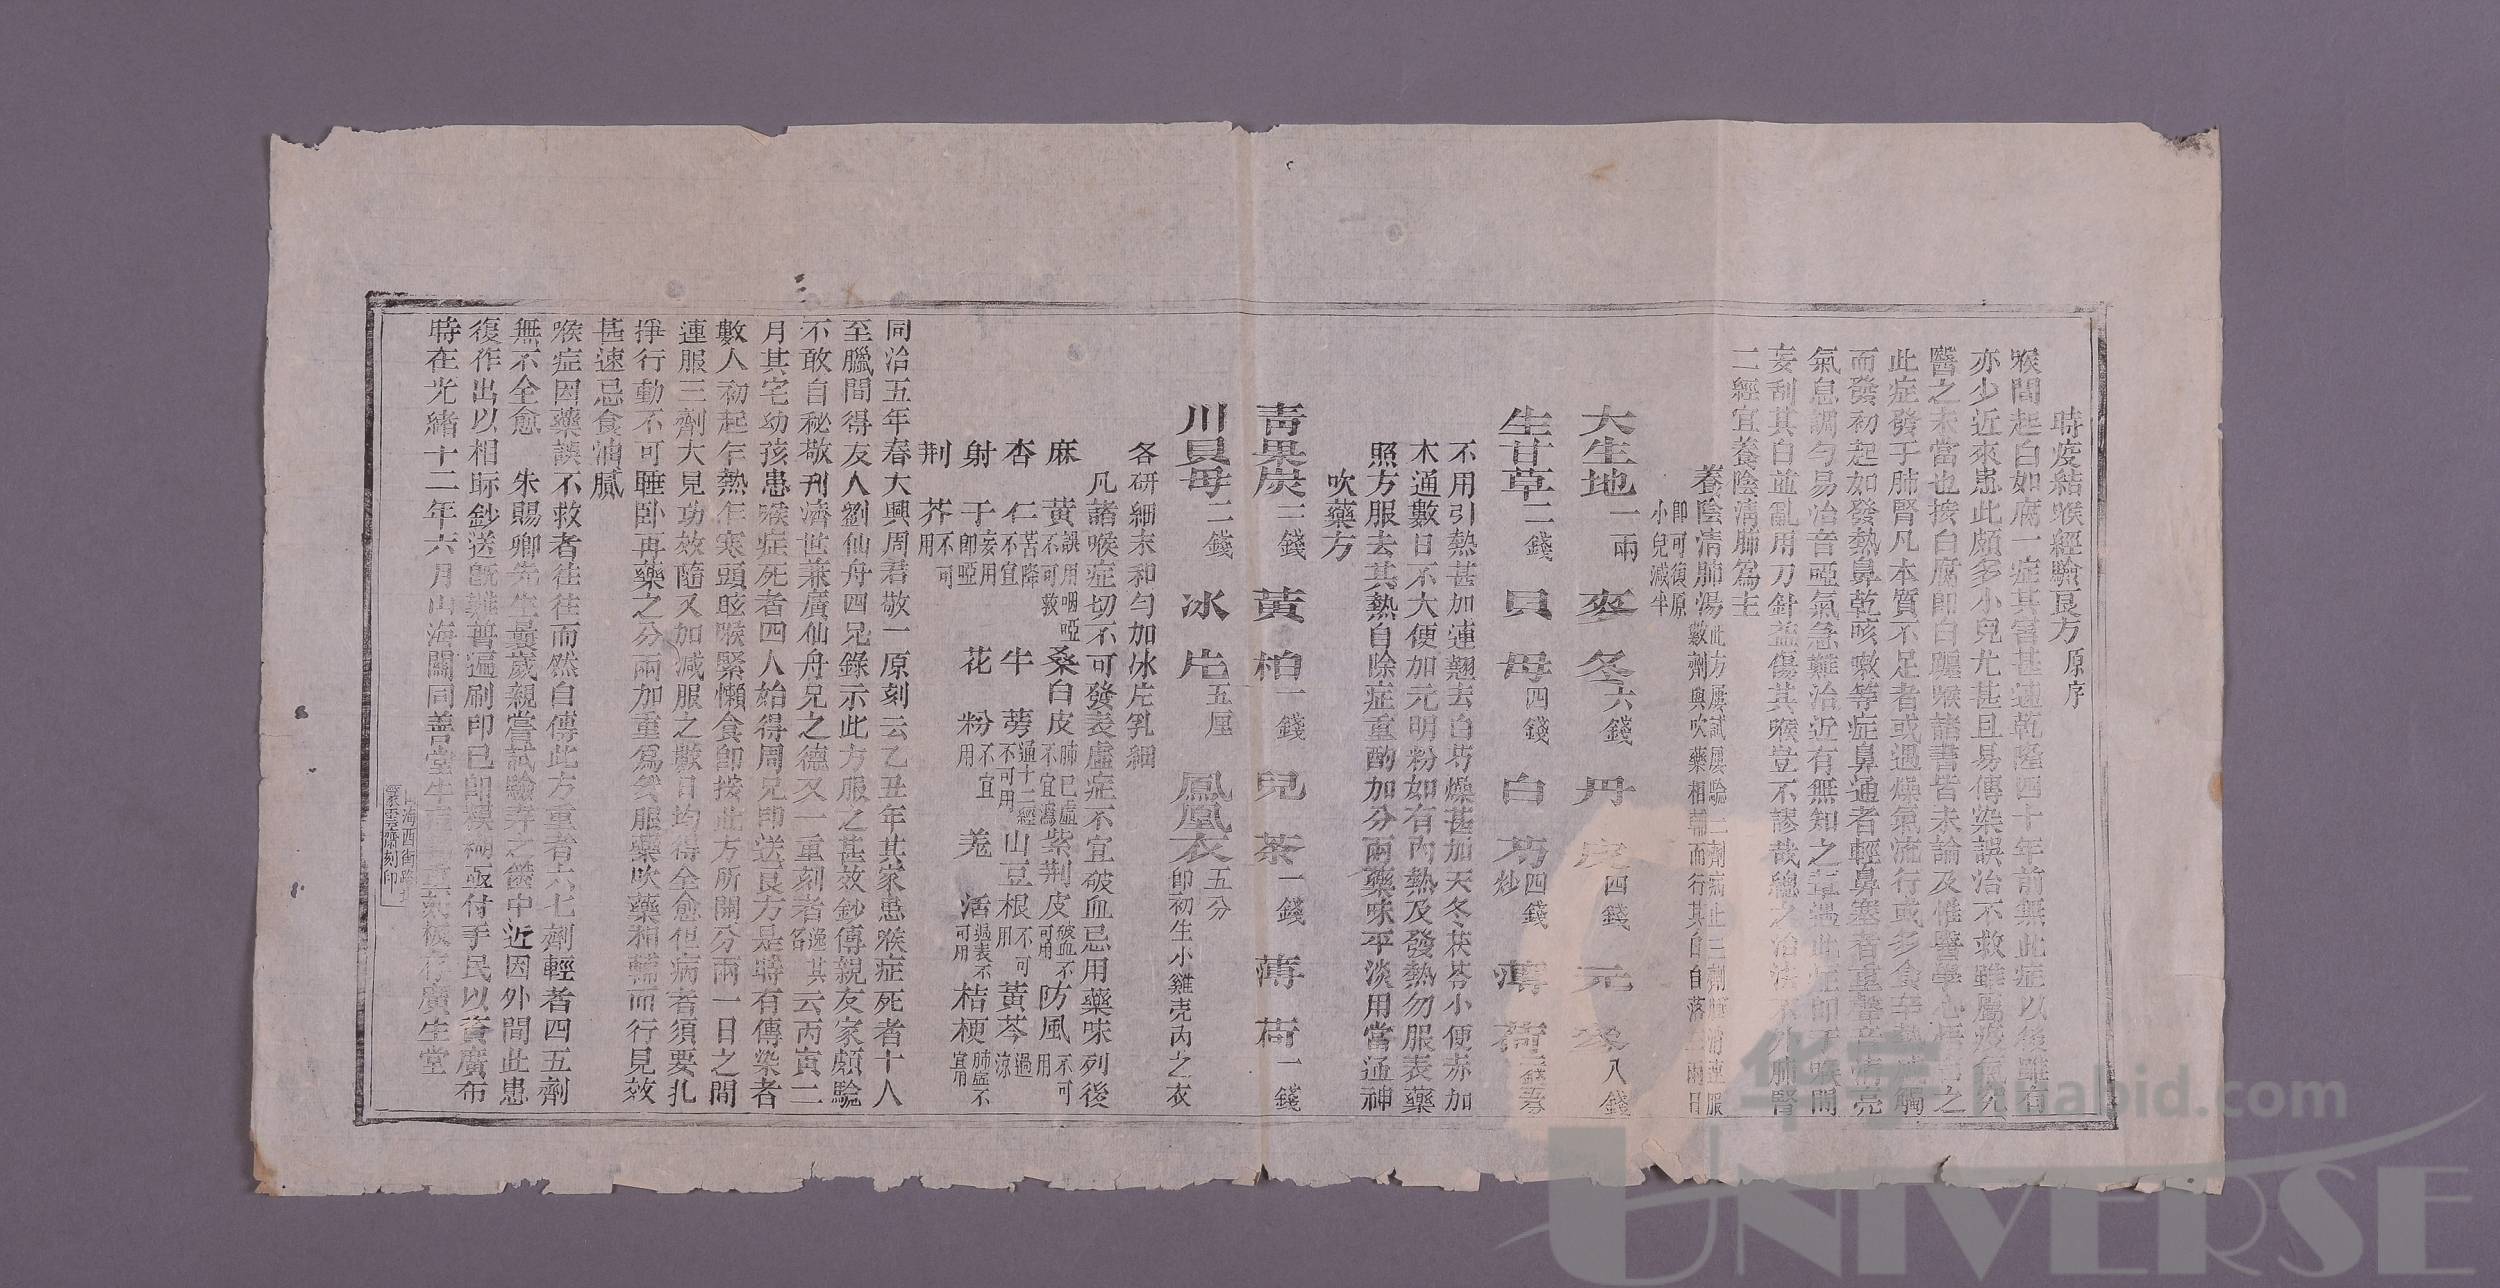 時疫結喉經驗良方原序
喉間起白如腐一症其害甚速乾隆四十年前無此症以後雖有
亦少近來患此頗多小兒尤甚且易傳染誤治不救雖屬疫氣究
醫之未當也按白腐即白纏喉諸書皆未論及惟醫學心悟言之
此症發于肺腎凡本質不足者或遇燥氣流行或多食辛熱之物觸
而發初起加發熱鼻乾咳嗽等症鼻通者輕鼻塞者重聲音清亮
氣息調勻易治音啞氣急難治近有無知之輩遇此症即于喉間
妄刮其白並亂用刀針益傷其喉豈不謬哉總之治法不外肺腎
二經宜養陰清肺爲主
養陰清肺湯此方屢試屢驗二劑病止三劑腫消連服數劑與吹藥相輔而行其白自落兩日即可復原小兒減半
大生地一兩 麥冬六錢 丹皮四錢 元參八錢
生甘草二錢 貝母四錢 白芍四錢炒 薄荷二錢五分
不用引熱甚加連翹去白芍燥甚加天冬茯苓小便赤加
木通數日不大便加元明粉如有內熱及發熱勿服表藥
照方服去其熱自除症重酌加分兩藥味平淡用當通神
吹藥方
靑果炭二錢 黃柏一錢 兒茶一錢 薄荷一錢
川貝母二錢 冰片五厘 鳳凰衣五分即初生小雞壳內之衣
各研細末和勻加冰片乳細
凡諸喉症切不可發表虛症不宜破血忌用藥味列後
麻黃誤用咽啞不可救 桑白皮肺已虛不宜瀉 紫荆皮破血不可用 防風不可用
杏仁苦降不宜 牛蒡通十二經不可用 山豆根不可用 黃芩過涼
射干妄用即啞 花粉不宜用 羌活過表不可用 桔梗肺虛不宜用
荆芥不可用
同治五年春大興周君敬一原刻云乙丑年其家患喉症死者十人
至臘間得友人劉仙舟四兄錄示此方服之甚效鈔傳親友家頗驗
不敢自秘敬刊濟世兼廣仙舟兄之德又一重刻者逸其名云丙寅二
月其宅幼孩患喉症死者四人始得周兄印送良方是時有傳染者
數人初起乍熱乍寒頭眩喉緊懶食即按此方所開分兩一日之間
連服三劑大見功效隨又加减服之數日均得全愈但病者須要扎
掙行動不可睡卧再藥之分兩加重爲矣服藥吹藥相輔而行見效
甚速忌食油膩
喉症因藥誤不救者往往而然自傳此方重者六七劑輕者四五劑
無不全愈 朱賜卿先生曩歲親嘗試驗弆之篋中近因外間此患
復作出以相眎鈔送旣難普遍刷印已卽模糊亟付手民以資廣布
時在光緒十二年六月山海關同善堂生 重 板存廣生堂
山海西街路北
聚雲齋刻印
华宇 huabid.com
UNIVERSE